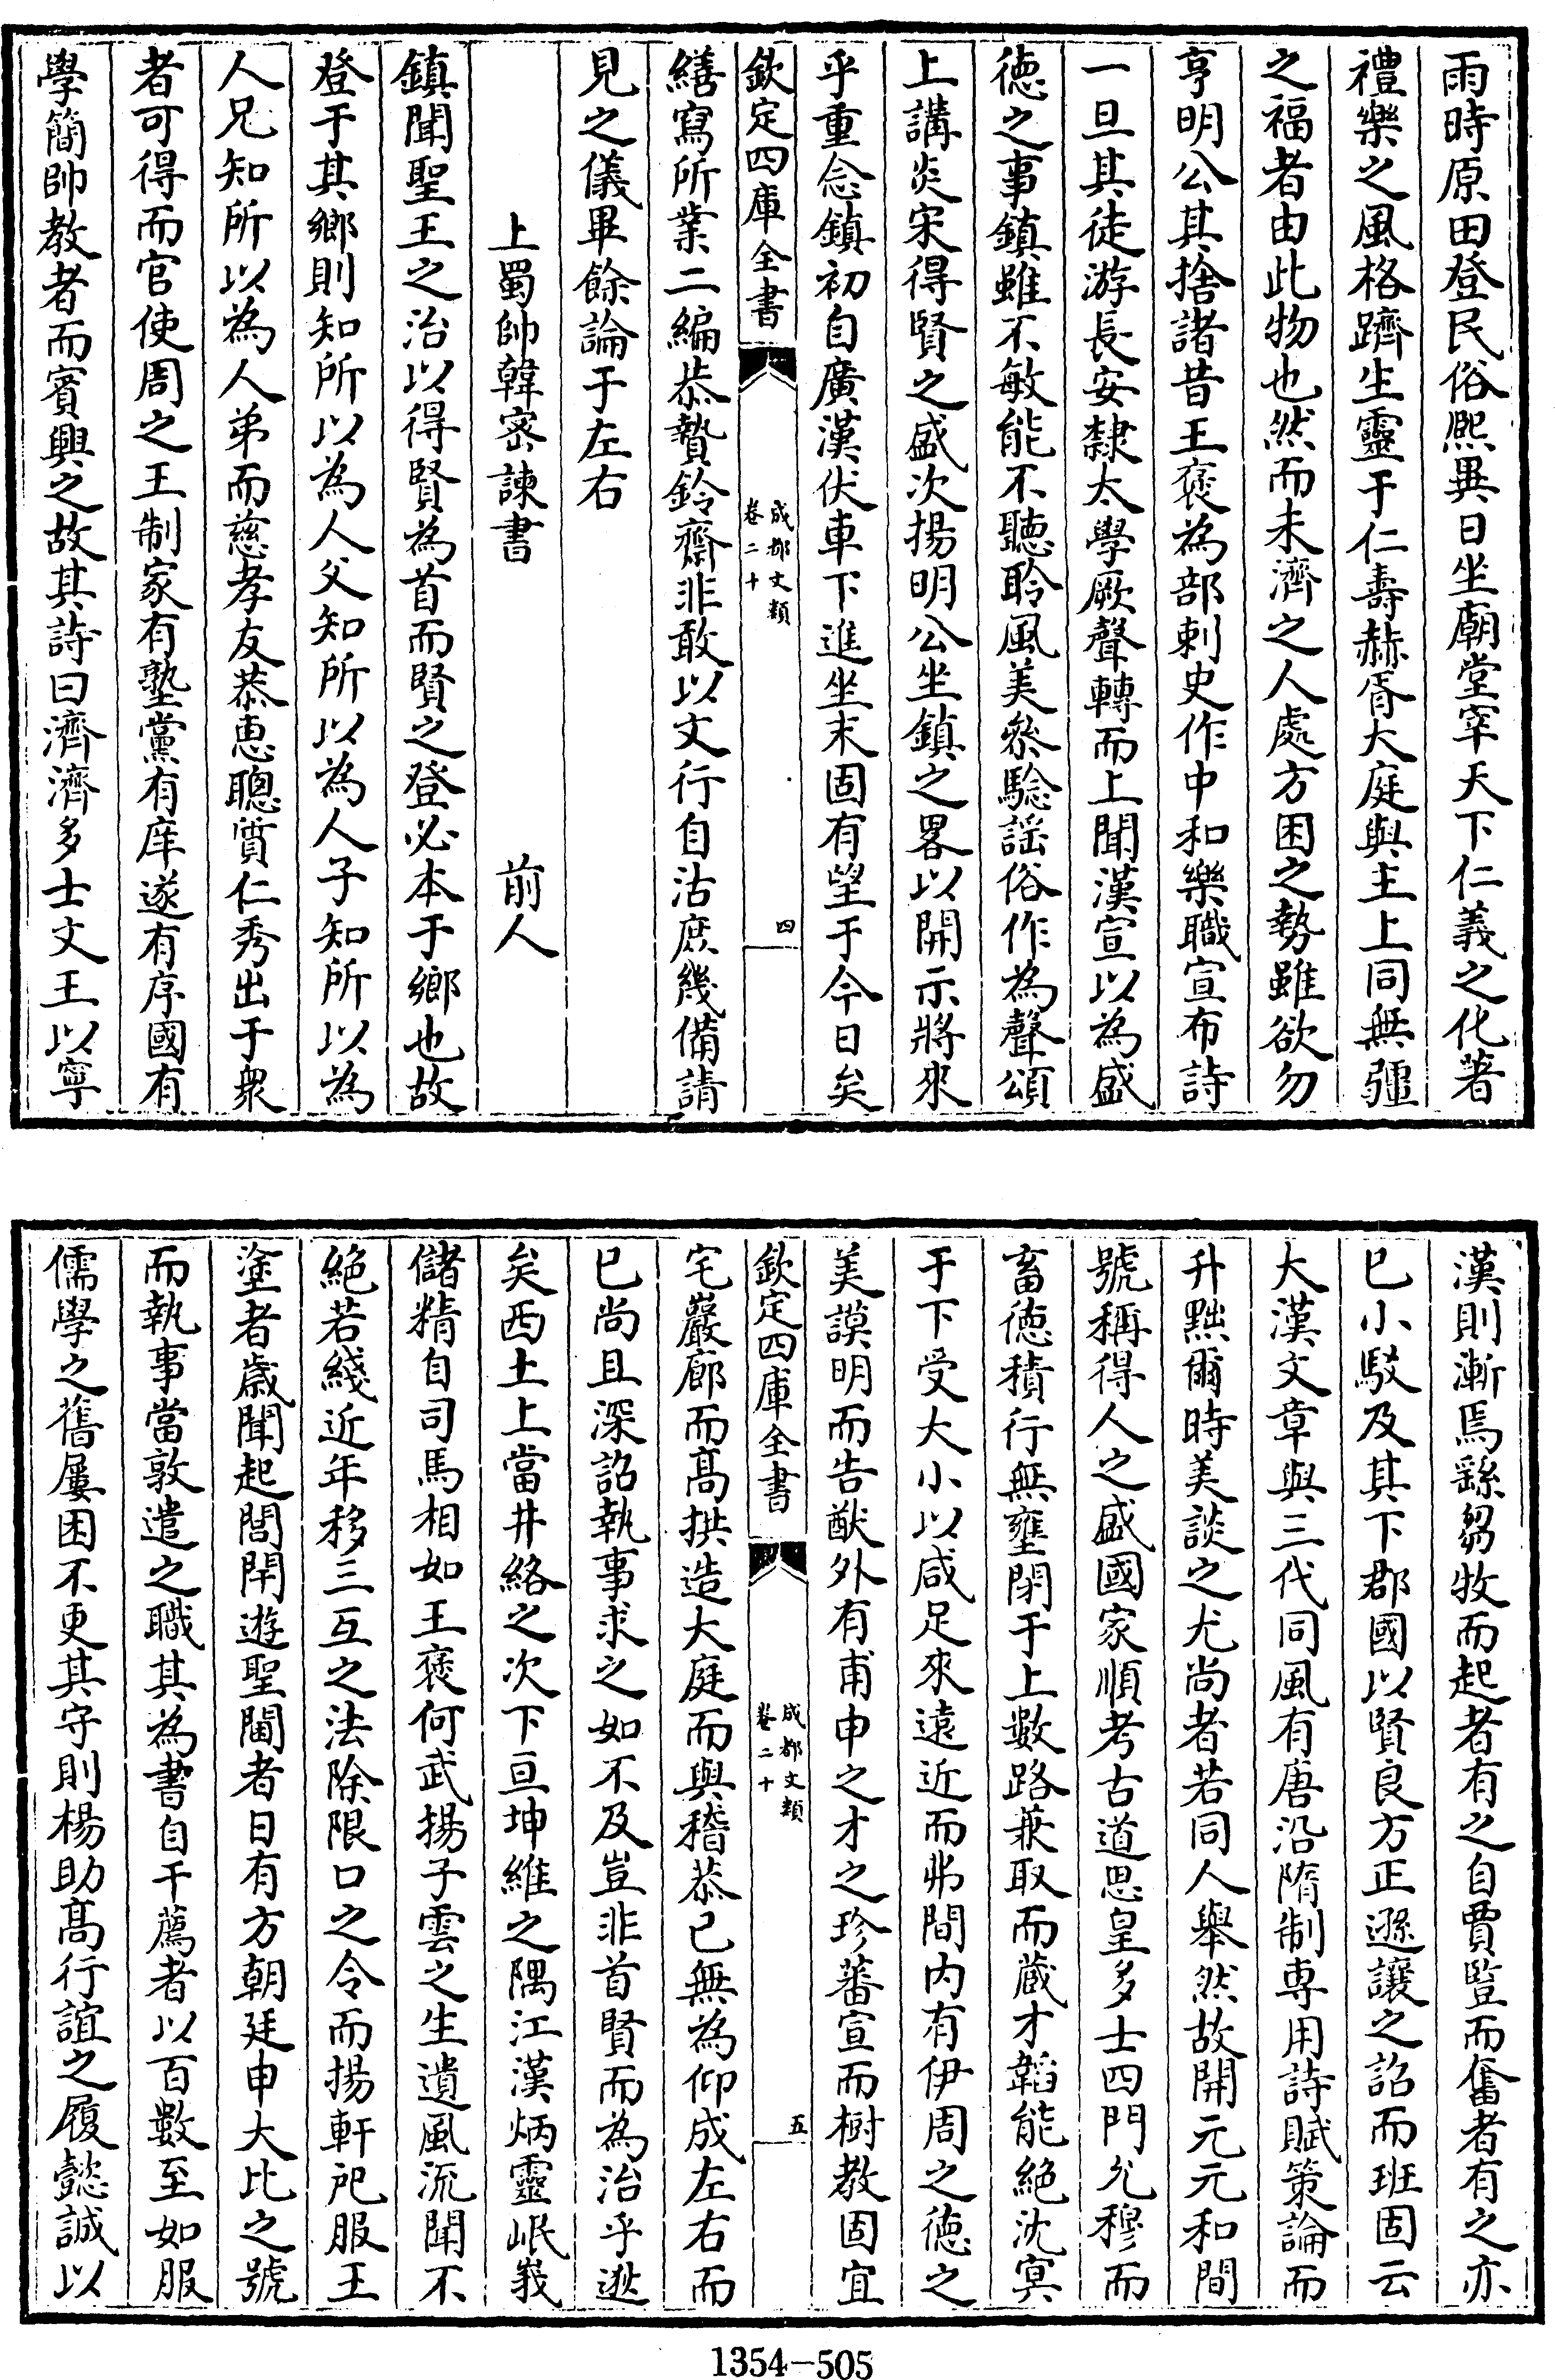 雨時原田登民俗熈異日坐廟堂宰天下仁義之化著
禮樂之風格躋生靈于仁壽赫胥大庭與主上同無彊
之福者由此物也然而未濟之人處方困之勢雖欲勿
亨明公其捨諸昔王褒為部刺史作中和樂職宣布詩
一旦其徒游長安隸太學厥聲轉而上聞漢宣以為盛
德之事鎮雖不敏能不聽聆風美叅騐謡俗作為聲頌
上講炎宋得賢之盛次揚明公坐鎮之畧以開示將來
乎重念鎮初自廣漢伏車下進坐末固有望于今日矣
欽定四庫全書
成都文類
卷二十
四
繕寫所業二編恭贄鈴齋非敢以文行自沽庶幾備請
見之儀畢餘論于左右
上蜀帥韓密諫書 前人
鎮聞聖王之治以得賢為首而賢之登必本于鄉也故
登于其鄉則知所以為人父知所以為人子知所以為
人兄知所以為人弟而慈孝友恭恵聰質仁秀出于衆
者可得而官使周之王制家有塾黨有庠遂有序國有
學簡帥教者而賓興之故其詩曰濟濟多士文王以寧
漢則漸焉繇芻牧而起者有之自賈豎而奮者有之亦
已小駁及其下郡國以賢良方正遜讓之詔而班固云
大漢文章與三代同風有唐沿隋制専用詩賦策論而
升黜爾時美談之尤尚者若同人舉然故開元元和間
號稱得人之盛國家順考古道思皇多士四門允穆而
畜徳積行無壅閉于上數路兼取而蔵才韜能絶沈冥
于下受大小以咸足來遠近而弗間内有伊周之德之
美謨明而告猷外有甫申之才之珍蕃宣而樹教固宜
欽定四庫全書
成都文類
卷二十
五
宅巖廊而髙拱造大庭而與稽恭已無為仰成左右而
已尚且深詔執事求之如不及豈非首賢而為治乎逖
矣西土上當井絡之次下亘坤維之隅江漢炳靈岷峩
儲精自司馬相如王褒何武揚子雲之生遺風流聞不
絶若綫近年移三互之法除限口之令而揚軒祀服王
塗者歳聞起閭閈遊聖閫者日有方朝廷申大比之號
而執事當敦遣之職其為書自干薦者以百數至如服
儒學之舊屢困不更其守則楊助髙行誼之履懿誠以
1354—505